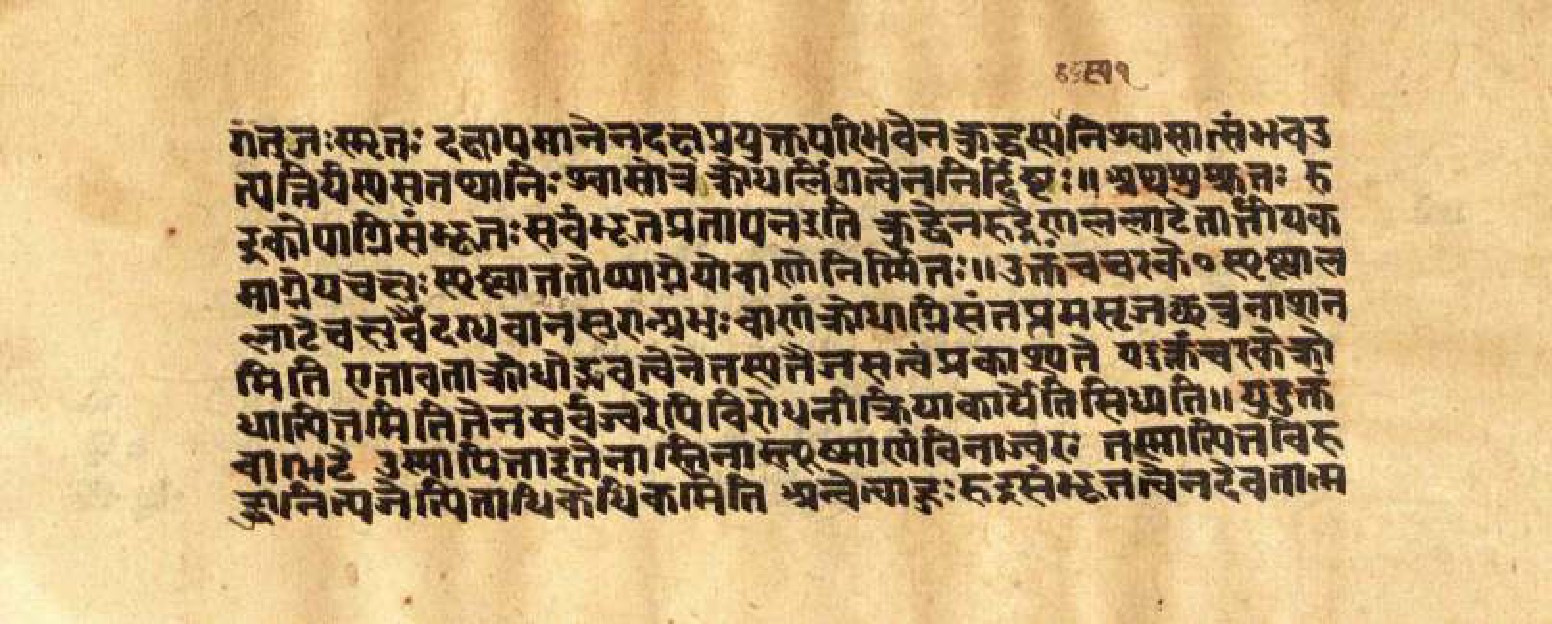 गंतुजःस्मृतः दक्षापमानेनदक्षप्रयुक्तपरिभवेन क्रुद्धस्यनिश्वासात्संभवउ
त्पत्तिर्यस्यसतथानिःश्वासोत्र क्रोधलिंगत्वेननिर्दिष्टः॥ श्रुतः रु
द्रकोपाग्निसंभूतःसर्वभूतप्रतापनइति क्रुद्धेनरुद्रेणललाटेतार्त्तीयक
माग्नेयचक्षुःसृष्ट्वाततोप्याग्नेयोबाणोनिर्म्मितः॥उक्तंचचरके॰सृष्ट्वाल
लाटेचक्षुर्वैदग्धवानसुरान्प्रभुःबाणंक्रोधाग्निसंतप्तमसृजत्छत्रुनाशन
मिति एतावताक्रोधोद्भवत्वेनेतस्यतैजसत्वंप्रकाश्यते यदुक्तंचरकेक्रो
धात्पित्तमितितेनसर्वज्वरेपिविरोधनीक्रियाकार्येतिसिध्यति॥यदुक्तं
वाग्भटे उष्मापित्तादृतेनास्तिनास्त्यूष्माणंविनाज्वरः तस्मात्पित्तविरु
द्धानित्यजेत्पित्ताधिकेधिकमिति अन्येत्वाहुःरुद्रसंभूतत्वेनदेवतात्म